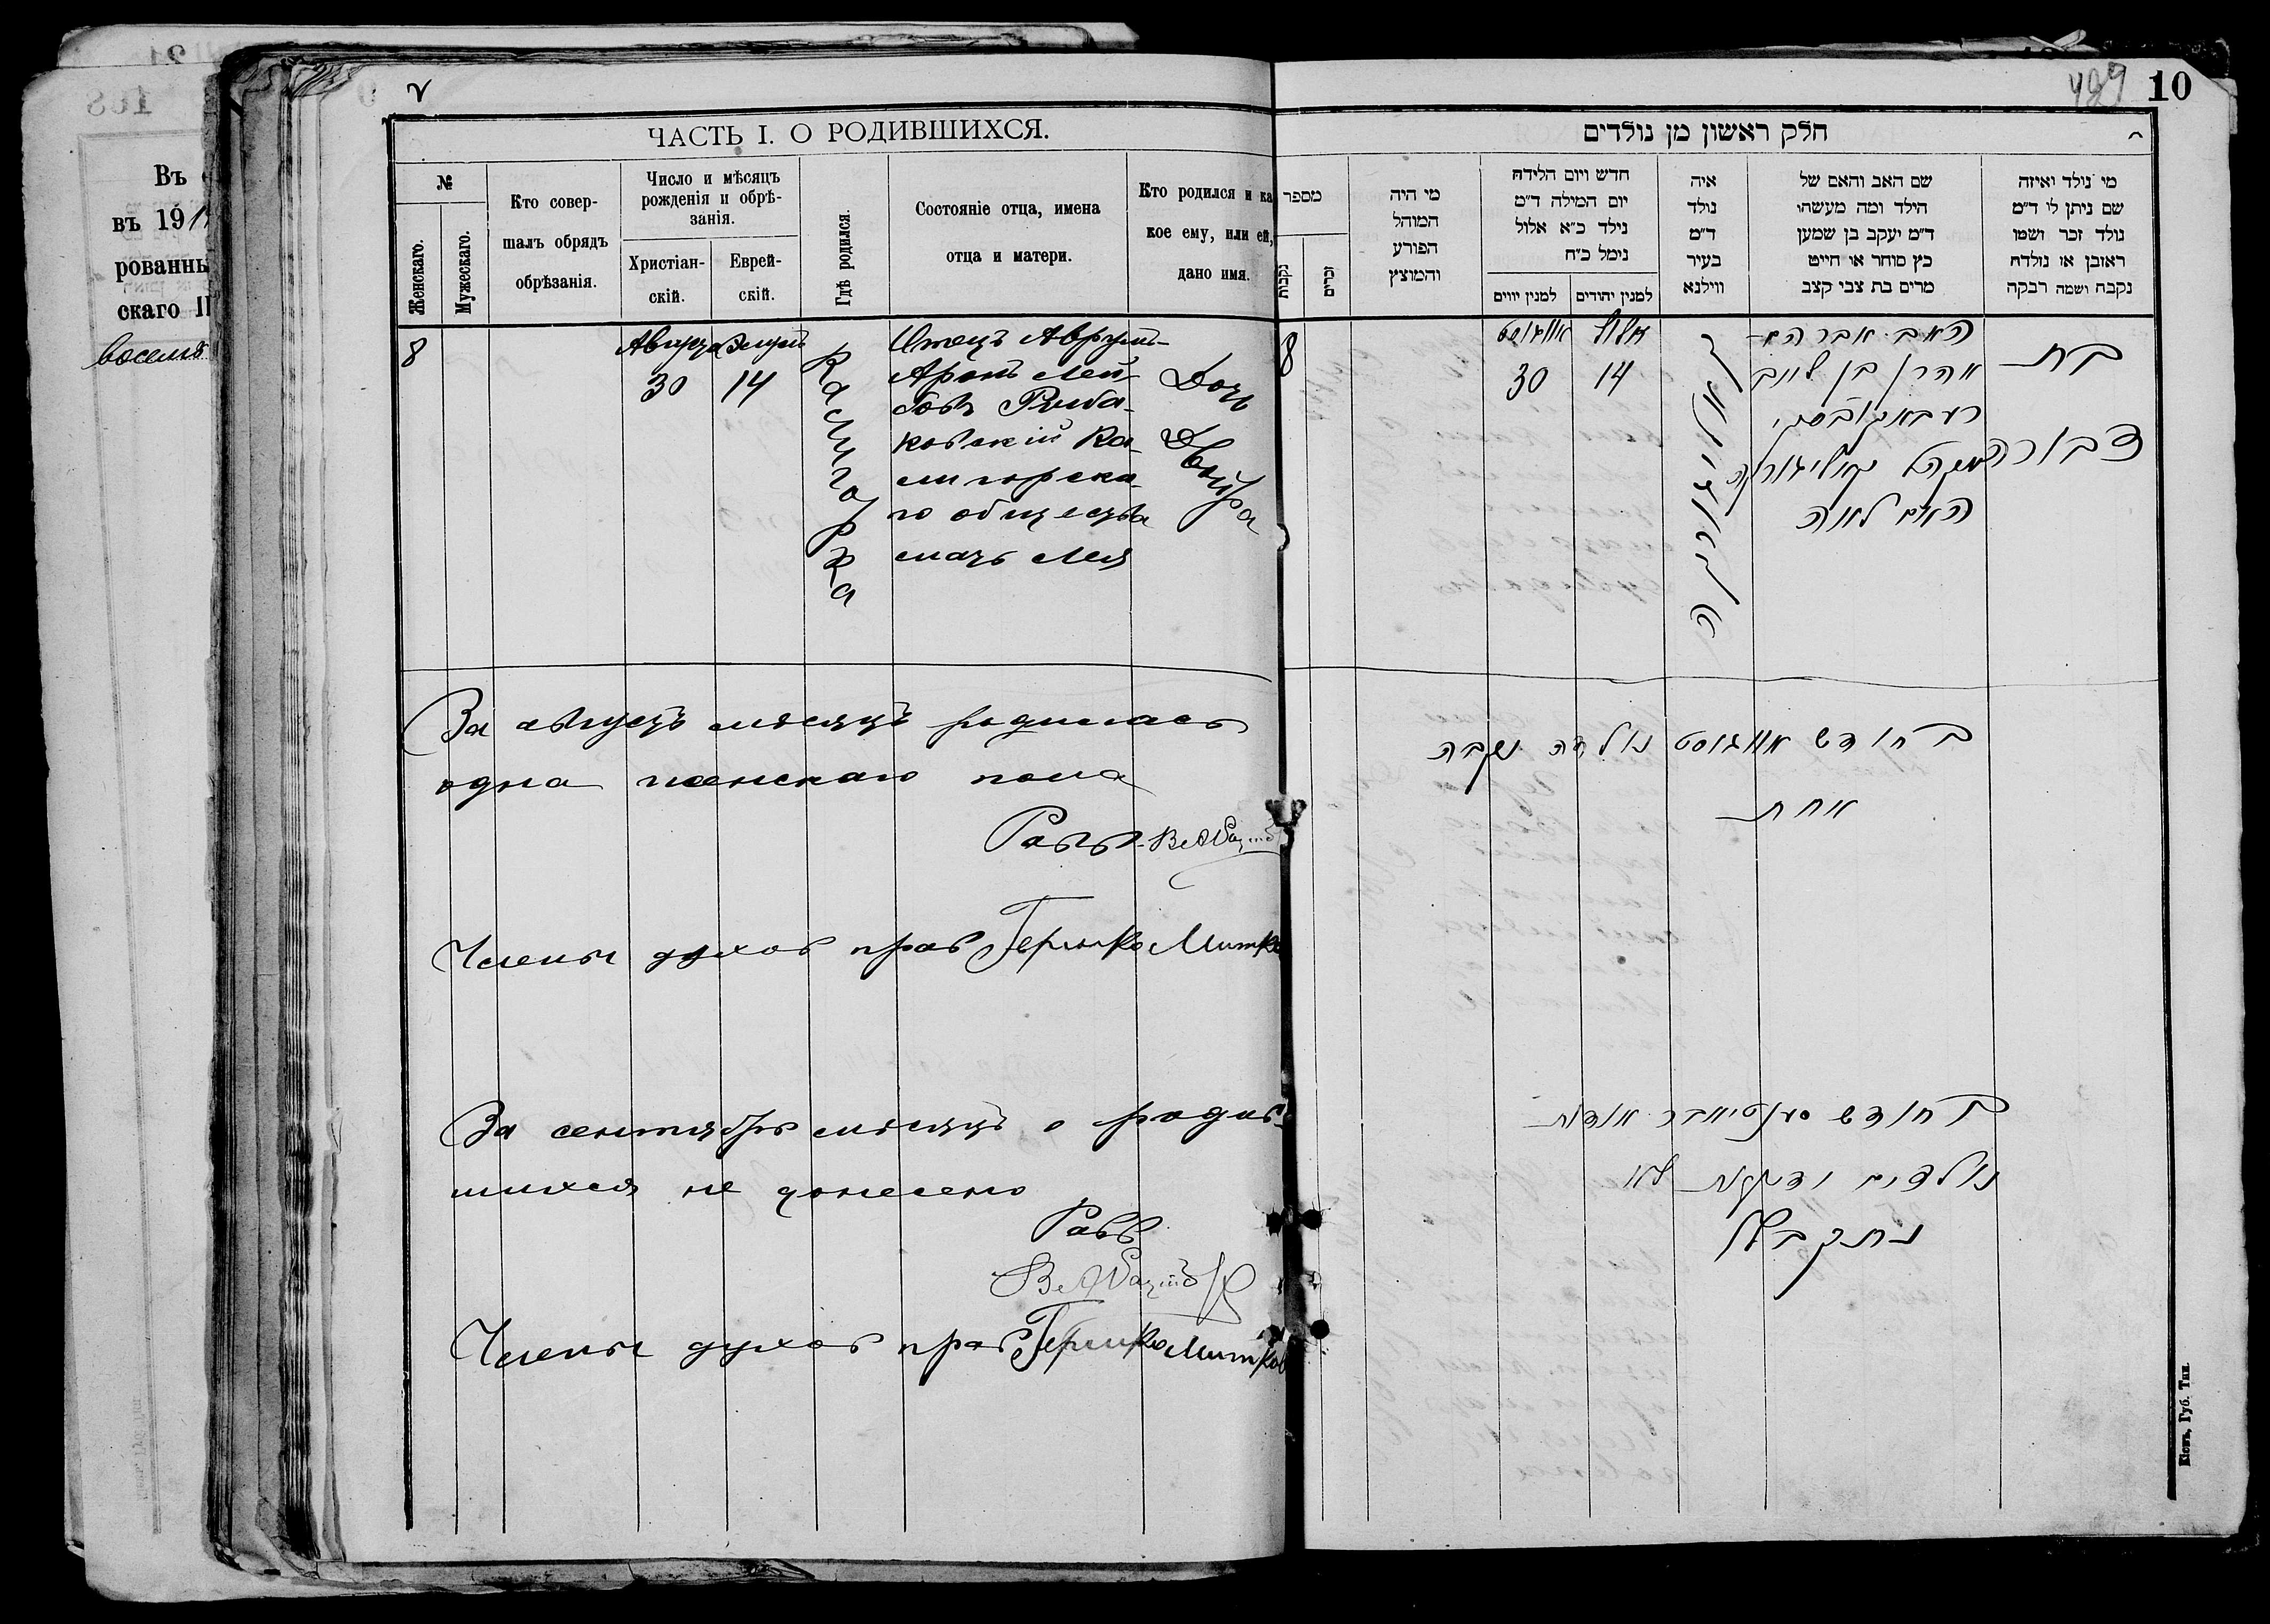 Въ
въ 191
рованны
скаго
восемь
ЧАСТЬ I. О РОДИВШИХСЯ.
№
Женскаго.
Мужескаго.
Кто совер-
шалъ обрядъ
обрѣзанія.
Число и мѣсяцъ
рожденія и обрѣ-
занія.
Христіан-
скій.
Еврей-
скій.
Гдѣ родился.
Состояніе отца, имена
отца и матери.
Кто родился и ка
кое ему, или ей,
дано имя.
8
30
14
Калигорка
Отецъ Аврумъ-
Аронъ Лей-
бовъ
ковскій Ка-
лигорска-
го общества
мать Лея
Дочь
Двойра
За августъ мѣсяцъ родилась
одна женскаго пола
Равв
Члены духов прав Гершко Митко
За сентябрь мѣсяцъ о родив-
шихся не донесено
Равв
Члены духов прав Гершко Митков
489
10
חלק ראשון מן נולדים
מספר
נקבות
זכרים
מי היה
המוהל
הפורע
והמוצץ
חדש ויום הלידה
יום המילה ד״מ
נילד כ״א אלול
נימל כ״ח
למנין יווים
למנין יהודים
איה
נולד
ד״מ
בעיר
ווילנא
שם האב והאם של
הילד ומה מעשהו
ד״מ יעקב בן שמען
כץ סוחר או חייט
מרים בת צבי קצב
מי נולד ואיזה
שם ניתן לו ד״מ
נולד זכר ושמו
ראובן או נולדה
נקבה ושמה רבקה
8
אווגוסט
30
אלול
14
האב אברהם
אהרן בן לייב
האם לאה
בת
דבורה
בחודש אווגוסט נולדה נקבה
אחת
בחודש סענטיאבר אודות
נולדים
Кіевъ, Губ. Тип.